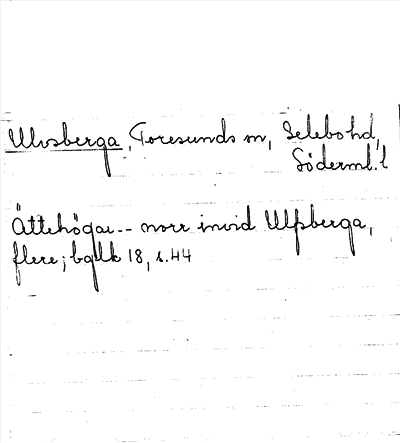 Ulvsberga, Toresunds sn, Selebo hd,
Söderml. l
Ättehögar -- norr invid Ulfsberga,
flere; bglk 18, s. 44